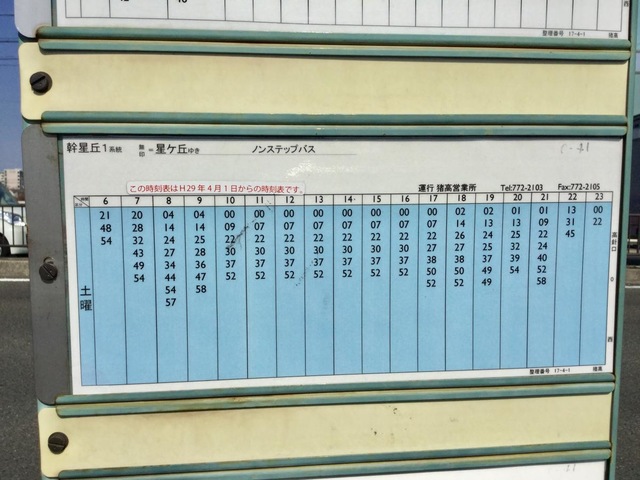 幹星丘1系統 無印=星ケ丘ゆき ノンステップバス
この時刻表はH29年4月1日からの時刻表です。 運行 猪高営業所 Tel:772-2103 Fax:772-2105
6 7 8 9 10 11 12 13 14 15 16 17 18 19 20 21 22 23
21 20 04 04 00 00 00 00 00 00 00 00 02 02 01 01 13 00
48 28 14 14 09 07 07 07 07 07 07 07 14 13 13 09 31 22
54 32 24 25 22 22 22 22 22 22 22 22 26 24 25 22 45
43 27 28 30 30 30 30 30 30 30 27 27 25 32 24
49 34 36 37 37 37 37 37 37 37 38 38 37 39 40
54 44 47 52 52 52 52 52 52 50 50 50 49 54 52
54 58 52 52 49 58
57
土曜
高針口
西
整理番号 17-4-1 猪高
整理番号 17-4-1 猪高